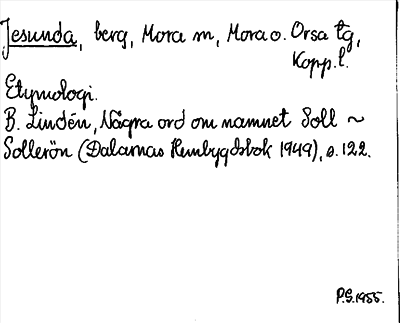 Jesunda, berg, Mora sn, Mora o. Orsa tg,
Kopp. l.
Etymologi.
B. Lindén, Några ord om namnet Soll ~
Sollerön (Dalarnas Hembygdsbok 1949), s. 122.
P.S. 1955.